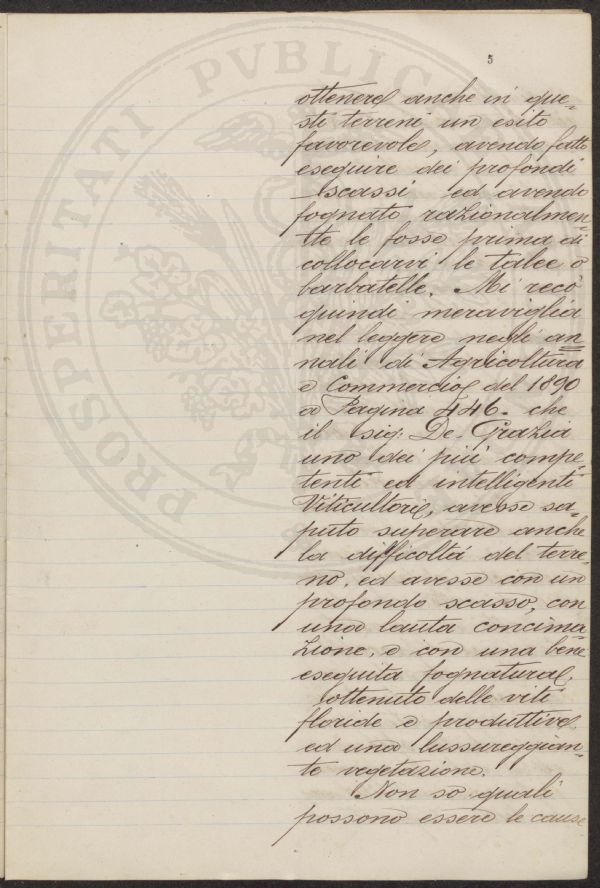 5
ottenere anche in que-
sti terreni un esito
favorevole, avendo fatto
eseguire dei profondi
scassi ed avendo
fognato razionalmen-
te le fosse prima di
collocarvi le talee o
barbatelle. Mi recò
quindi meraviglia
nel leggere negli an
nali di Agricoltura
e Commercio del 1890
a Pagina 446. che
il sig: De-Grazia
uno dei più compe-
tenti ed intelligenti
Viticultori, avesse sa-
puto superare anche
la difficoltà del terre-
no, ed avesse con un
profondo scasso, con
una lauta concima-
zione, e con una bene
eseguita fognatura,
ottenuto delle viti
floride e produttive
ed una lussureggian-
te vegetazione.
Non so quali
possono essere le cause
PROSPERITATI PVBLIC